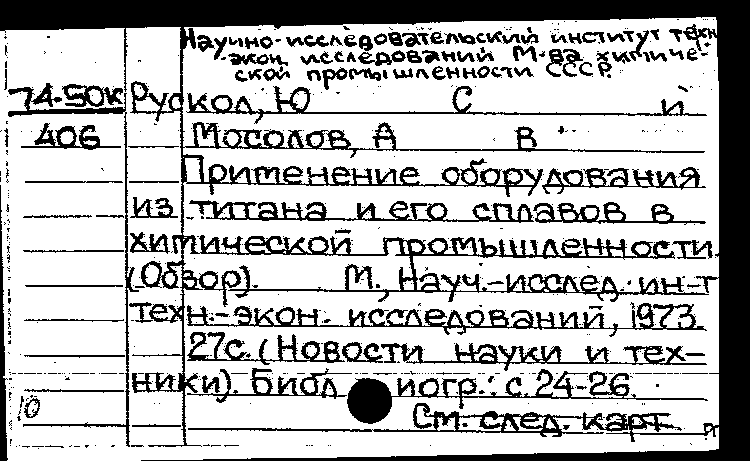 Научно-исследовательский институт техн
-экон. исследований М-ва химиче-
ской промышленности СССР.
74-50к Рускол, Ю С и
406 Мосолов, А В
Применение оборудования
из титана и его сплавов в
химической промышленности.
(Обзор). М., Науч.-исслед. ин-т
техн.-экон. исследований, 1973.
27с. (Новости науки и тех-
ники). Библиогр.: с. 24-26.
10
См. след. карт.